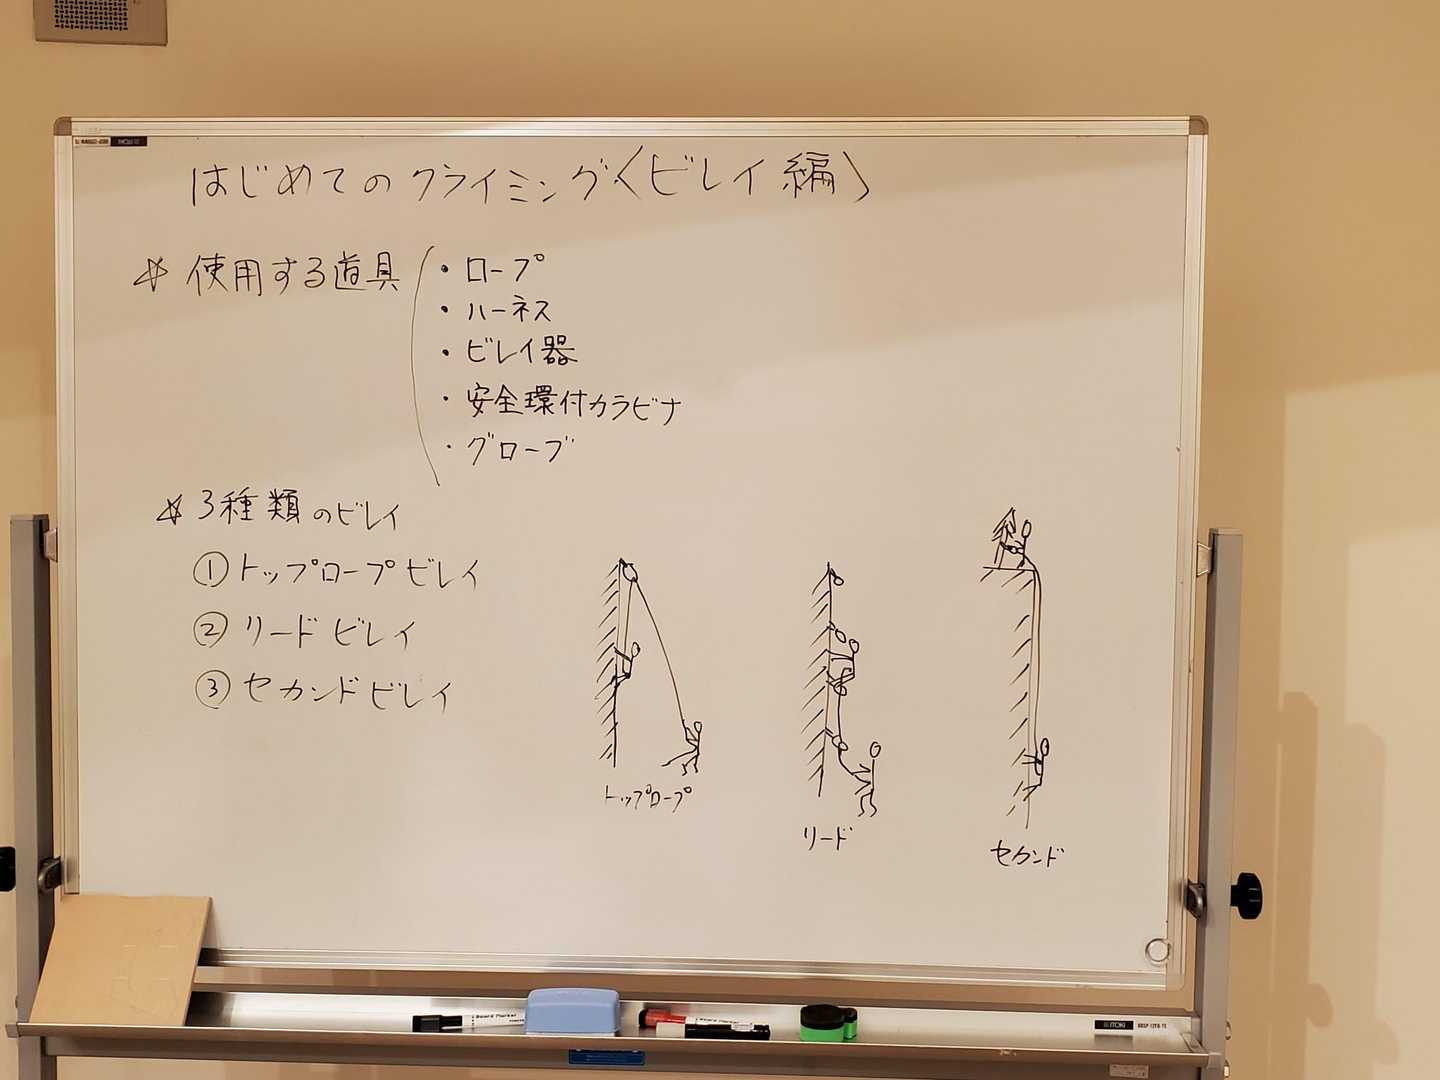 はじめてのクライミング〈ビレイ編〉
☆ 使用する道具
・ロープ
・ハーネス
・ビレイ器
・安全環付カラビナ
・グローブ
☆ 3種類のビレイ
① トップロープビレイ
② リードビレイ
③ セカンドビレイ
トップロープ
リード
セカンド
Board Marker
Board Marker
ITOKI